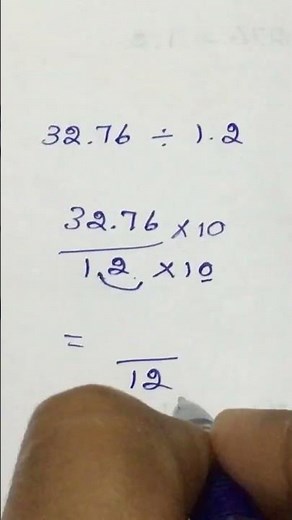 32.76 ÷ 1.2
32.76 × 10
1.2 × 10
=
12